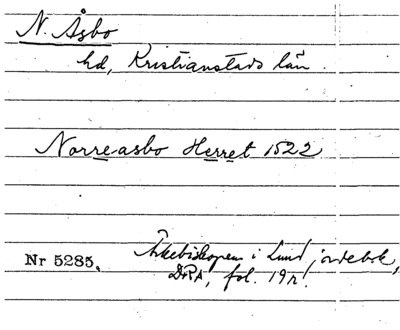 N. Åsbo
hd, Kristianstads län.
Norreasbo Herret 1522
Nr 5285.
Ärkebiskopens i Lund jordebok,
DRA, fol. 19r.